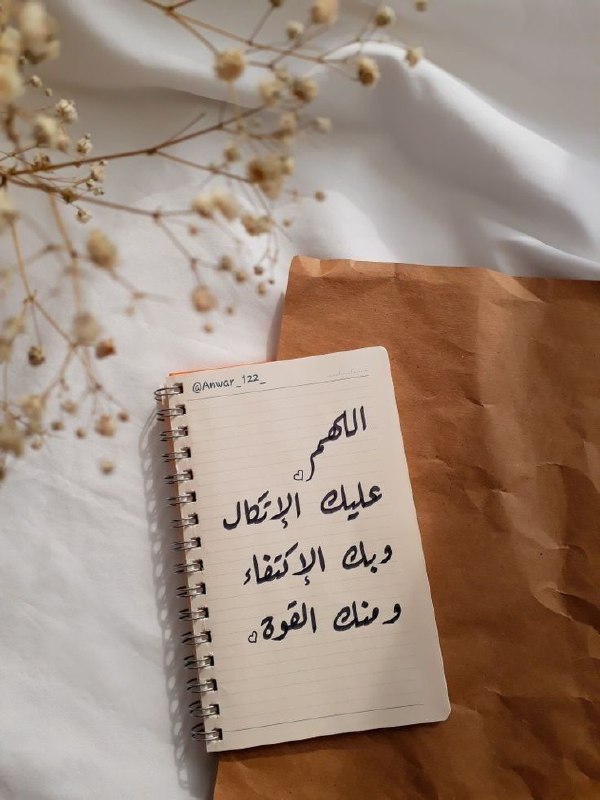 @Anwar_122_
اللهم
عليك الإتكال
وبك الإكتفاء
ومنك القوة